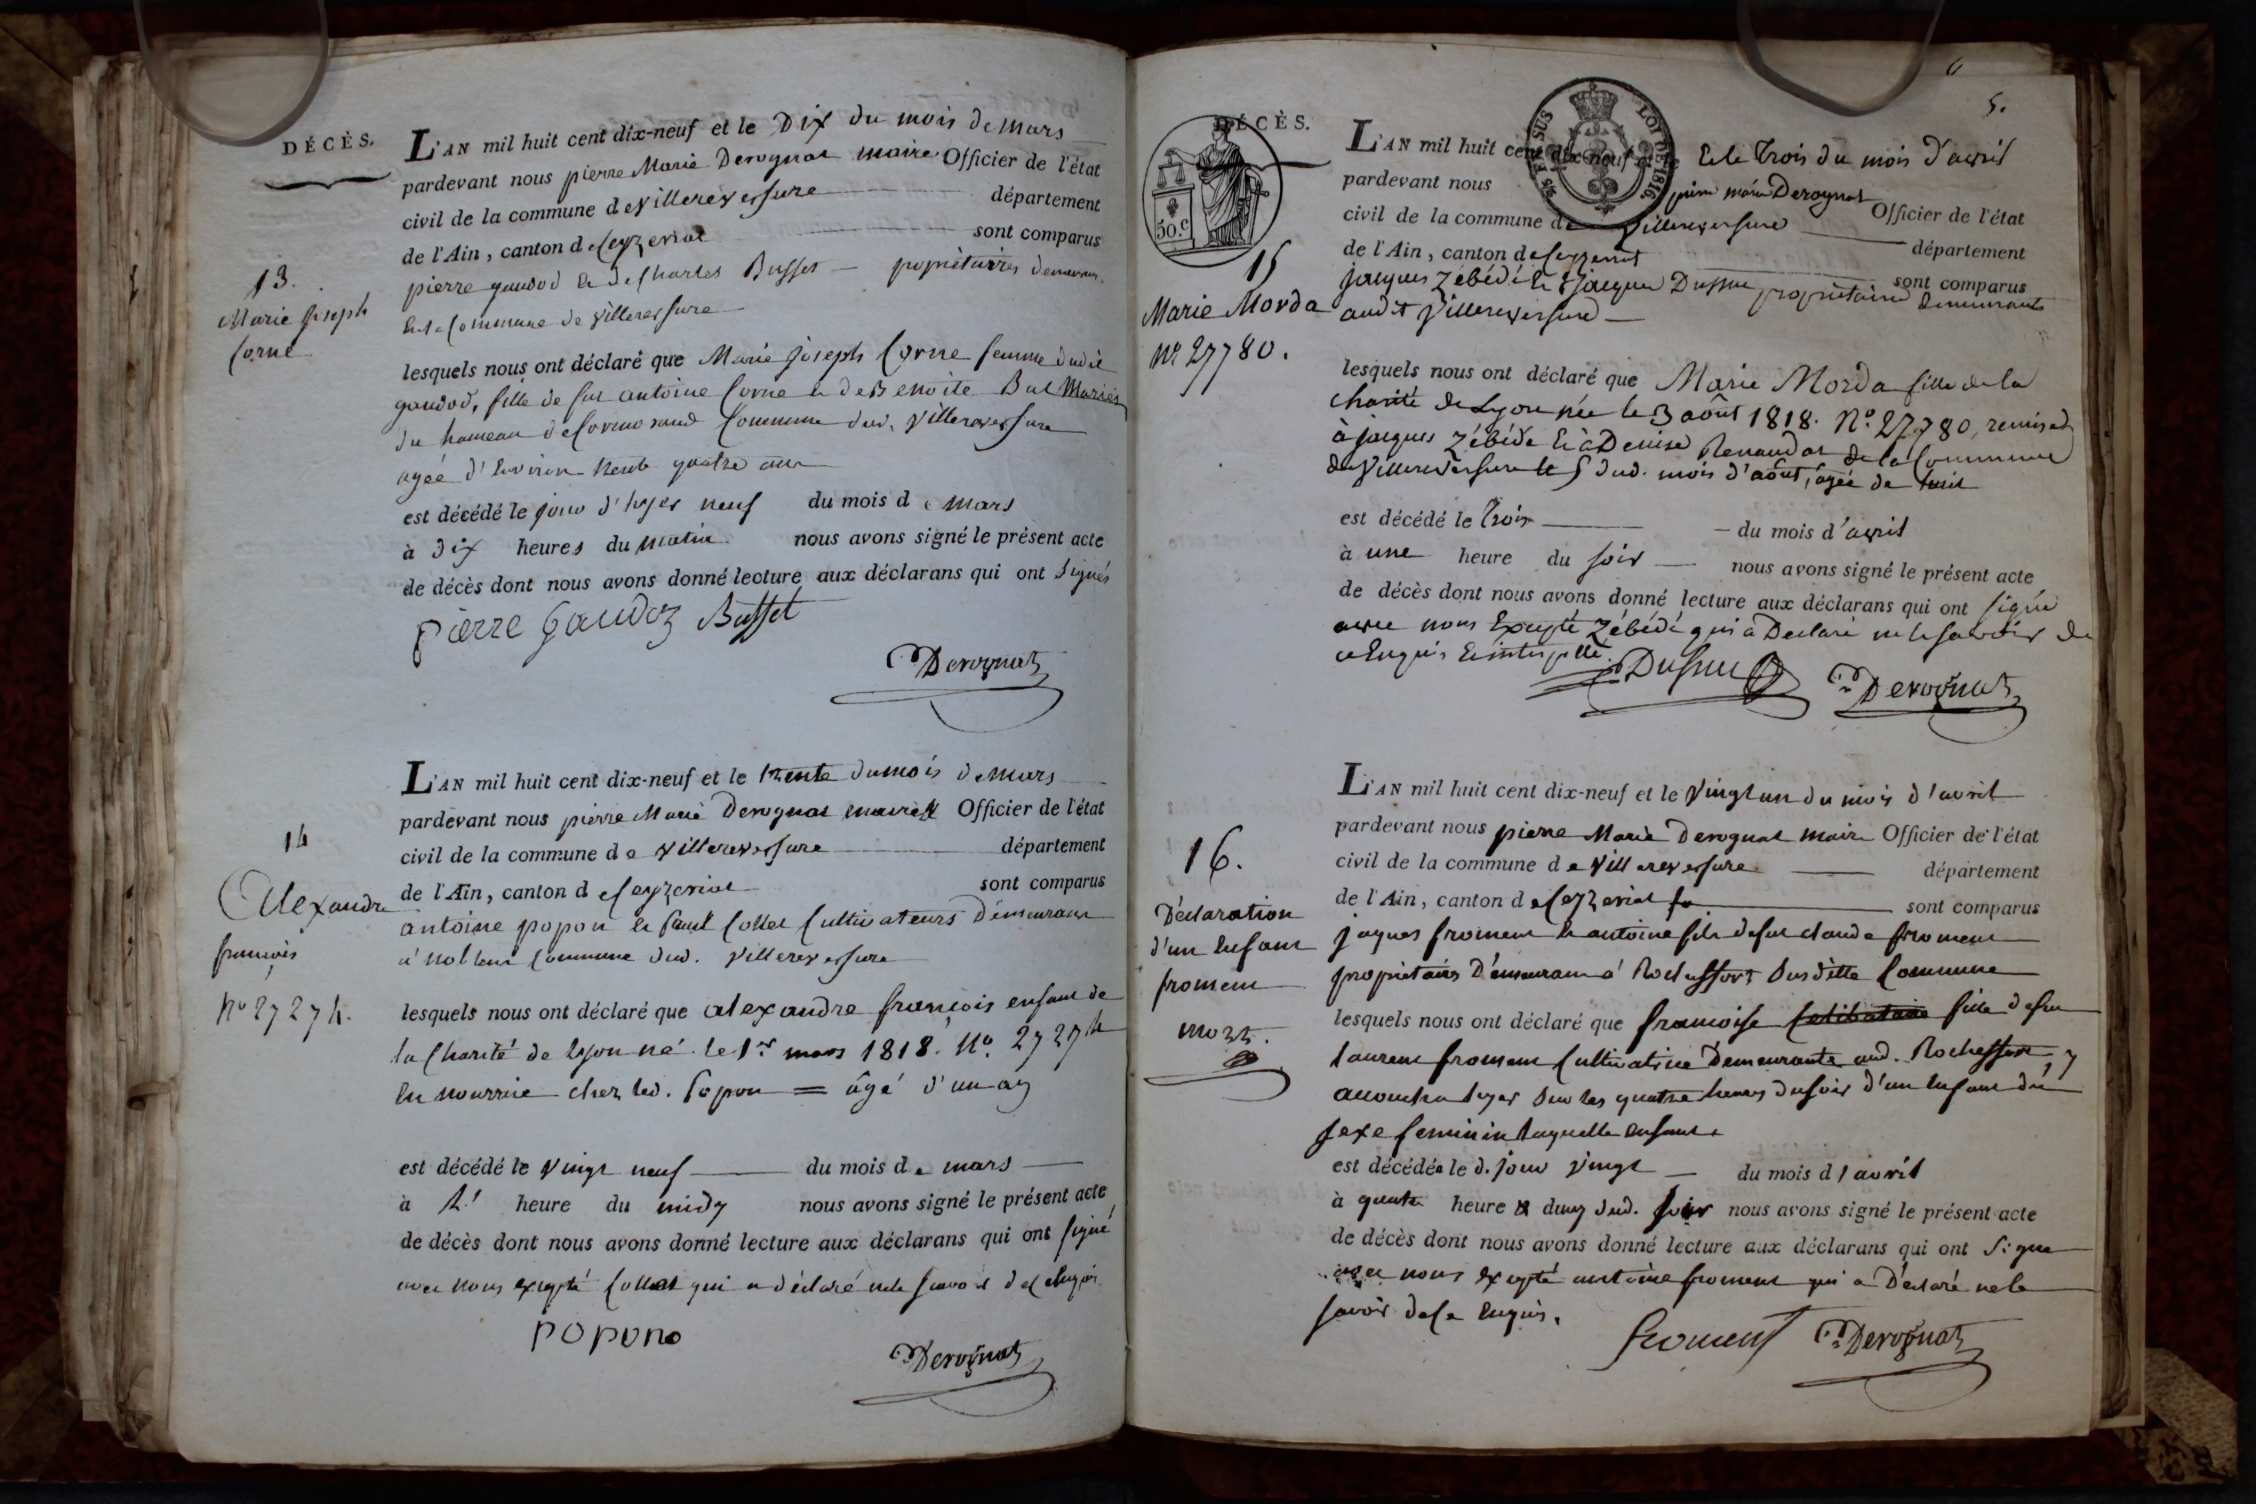 DÉCÈS.
L'AN mil huit cent dix-neuf et le Dix du mois de mars
pardevant nous pierre Marie Derognat maire Officier de l'état
civil de la commune de villereversure département
de l'Ain, canton de Ceyzeriat sont comparus
pierre gaudod et de Charles Busset propriétaires
commune de villereversure
13.
Marie Joseph
Corne
lesquels nous ont déclaré que Marie joseph Corne femme dudit
gaudod, fille de feu antoine Corne et de Benoite Bal Mariés
du hameau de Commune dud. villereversure
agée d'environ trente quatre ans
est décédé le jour d'hyer neuf du mois de mars
à dix heures du matin nous avons signé le présent acte
de décès dont nous avons donné lecture aux déclarans qui ont signés
pierre gaudoz Busset
Derognat
L'AN mil huit cent dix-neuf et le trente du mois de mars
pardevant nous pierre Marie Derognat maire Officier de l'état
civil de la commune de villereversure département
de l'Ain, canton de Ceyzeriat sont comparus
14
Alexandre
francois
No 27274.
antoine popon et Collet Cultivateurs Demeurant
à Commune dud. villereversure
lesquels nous ont déclaré que alexandre francois enfant de
la Charité de Lyon né le 1er mars 1818. No. 27274
en nourrice chez led. popon = âgé d'un an
est décédé le vingt neuf du mois de mars
à heure du midy nous avons signé le présent acte
de décès dont nous avons donné lecture aux déclarans qui ont signé
avec nous excepté Collet qui a déclaré ne le savoir de ce enquis
popon
Derognat
5.
DÉCÈS.
50.c
LOI DE 1816
L'AN mil huit cent dix-neuf et le Et le trois du mois d'avril
pardevant nous pierre marie Derognat Officier de l'état
civil de la commune de villereversure département
de l'Ain, canton de Ceyzeriat sont comparus
jacques Zébédé et jacques Dufour propriétaires demeurants
audit villereversure
15
Marie Morda
No 27780.
lesquels nous ont déclaré que Marie Morda fille de la
charité de Lyon née le 3 août 1818. No. 27780, remise
à jacques Zébédé et à Denise Renaudat de la Commune
de villereversure le 5 dud. mois d'août, agée de huit
est décédé le trois du mois d'avril
à une heure du soir nous avons signé le présent acte
de décès dont nous avons donné lecture aux déclarans qui ont signé
avec nous Excepté Zébédé qui a Declaré ne le savoir de
ce Enquis
Derognat
L'AN mil huit cent dix-neuf et le vingt un du mois d'avril
pardevant nous pierre Marie Derognat maire Officier de l'état
civil de la commune de villereversure département
de l'Ain, canton de Ceyzeriat sont comparus
16.
Déclaration
d'un enfant
froment
mort.
jaques froment et antoine fils de feu claude froment
propriétaires Demeurant à Rochefort susditte Commune
lesquels nous ont déclaré que francoise Celibataire fille de feu
laurent froment Cultivatrice Demeurante aud. Rochefort
accoucha hyer sur les quatre heures du soir d'un enfant du
sexe feminin laquelle enfant
est décédée le d. jour vingt du mois d'avril
à quatre heure dud. soir nous avons signé le présent acte
de décès dont nous avons donné lecture aux déclarans qui ont signé
avec nous excepté antoine froment qui a Déclaré ne le
savoir de Ce enquis.
froment Derognat